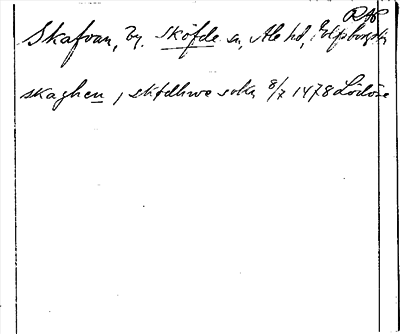 RAP
Skafvan, by. Sköfde sn, Ale hd, Elfsborgs l.
skaghen, skødhwe sokn 8/7 1478 Lödöse